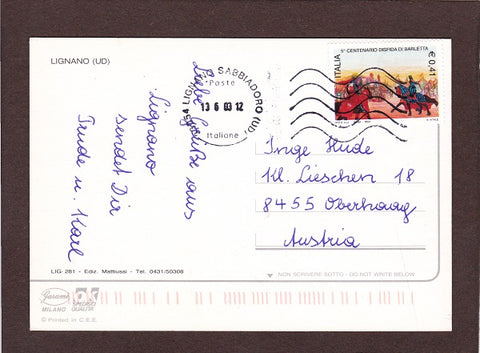 LIGNANO (UD)
Liebe Grüße aus
Lignano
sendet Dir
Trude u. Karl
LIGNANO SABBIADORO (UD)
Poste
13 6 03 12
Italiane
5° CENTENARIO DISFIDA DI BARLETTA
ITALIA
€ 0,41
Inge Hude
Kl. Lieschen 18
8455 Oberhaag
Austria
LIG-281 - Ediz. Mattiussi - Tel. 0431/50308
NON SCRIVERE SOTTO - DO NOT WRITE BELOW
Garami
MILANO
SPECIALIST
QUALITÀ
© Printed in C.E.E.